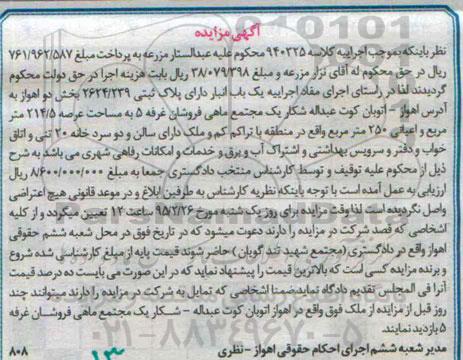 آگهی مزایده
نظر باینکه بموجب اجراییه کلاسه ۹۴۰۳۲۵ محکوم علیه عبدالستار مزرعه به پرداخت مبلغ ۷۶۱/۹۶۲/۵۸۷
ریال در حق محکوم له آقای نزار مزرعه و مبلغ ۳۸۰۷۹۳۹۸ ریال بابت هزینه اجرا در حق دولت محکوم
گردیدند لذا در راستای اجرای مفاد اجراییه یک باب انبار دارای پلاک ثبتی ۲۶۲۴/۲۳۹ بخش دو اهواز به
آدرس اهواز – اتوبان کوت عبداله شکار یک مجتمع ماهی فروشان غرفه ۵ به مساحت عرصه ۲۱۴/۵ متر
مربع و اعیانی ۲۵۰ متر مربع واقع در منطقه با تراکم کم و ملک دارای سالن و دو سرد خانه ۲۰ تنی و اتاق
خواب و دفتر و سرویس بهداشتی و اشتراک آب و برق و خدمات و امکانات رفاهی شهری می باشد به شرح
ذیل از محکوم علیه توقیف و توسط کارشناس منتخب دادگستری جمعا به مبلغ ۸/۶۰۰/۰۰۰/۰۰۰ ریال
ارزیابی به عمل آمده است با توجه باینکه نظریه کارشناس به طرفین ابلاغ و در موعد قانونی هیچ اعتراضی
واصل نگردیده است لذا وقت مزایده برای روز یک شنبه مورخ ۹۵/۲/۲۶ ساعت ۱۲ تعیین میگردد و از کلیه
اشخاصی که قصد شرکت در مزایده را دارند دعوت میشود که در تاریخ فوق در محل شعبه ششم حقوقی
اهواز واقع در دادگستری (مجتمع شهید تند گویان) حاضر شوند قیمت پایه از مبلغ کارشناسی شده شروع
و برنده مزایده کسی است که بالاترین قیمت را پیشنهاد نماید که در این صورت می بایست ده درصد قیمت
آنرا فی المجلس تقدیم دادگاه نماید ضمنا اشخاصی که تمایل به شرکت در مزایده را دارند میتوانند چند
روز قبل از مزایده از ملک فوق واقع در اهواز اتوبان کوت عبداله – شکار یک مجتمع ماهی فروشان غرفه
۵ بازدید نمایند.
مدیر شعبه ششم اجرای احکام حقوقی اهواز – نظری ۸۰۸
۰۲۱-۸۸۳۴۹۶۷۰-۵